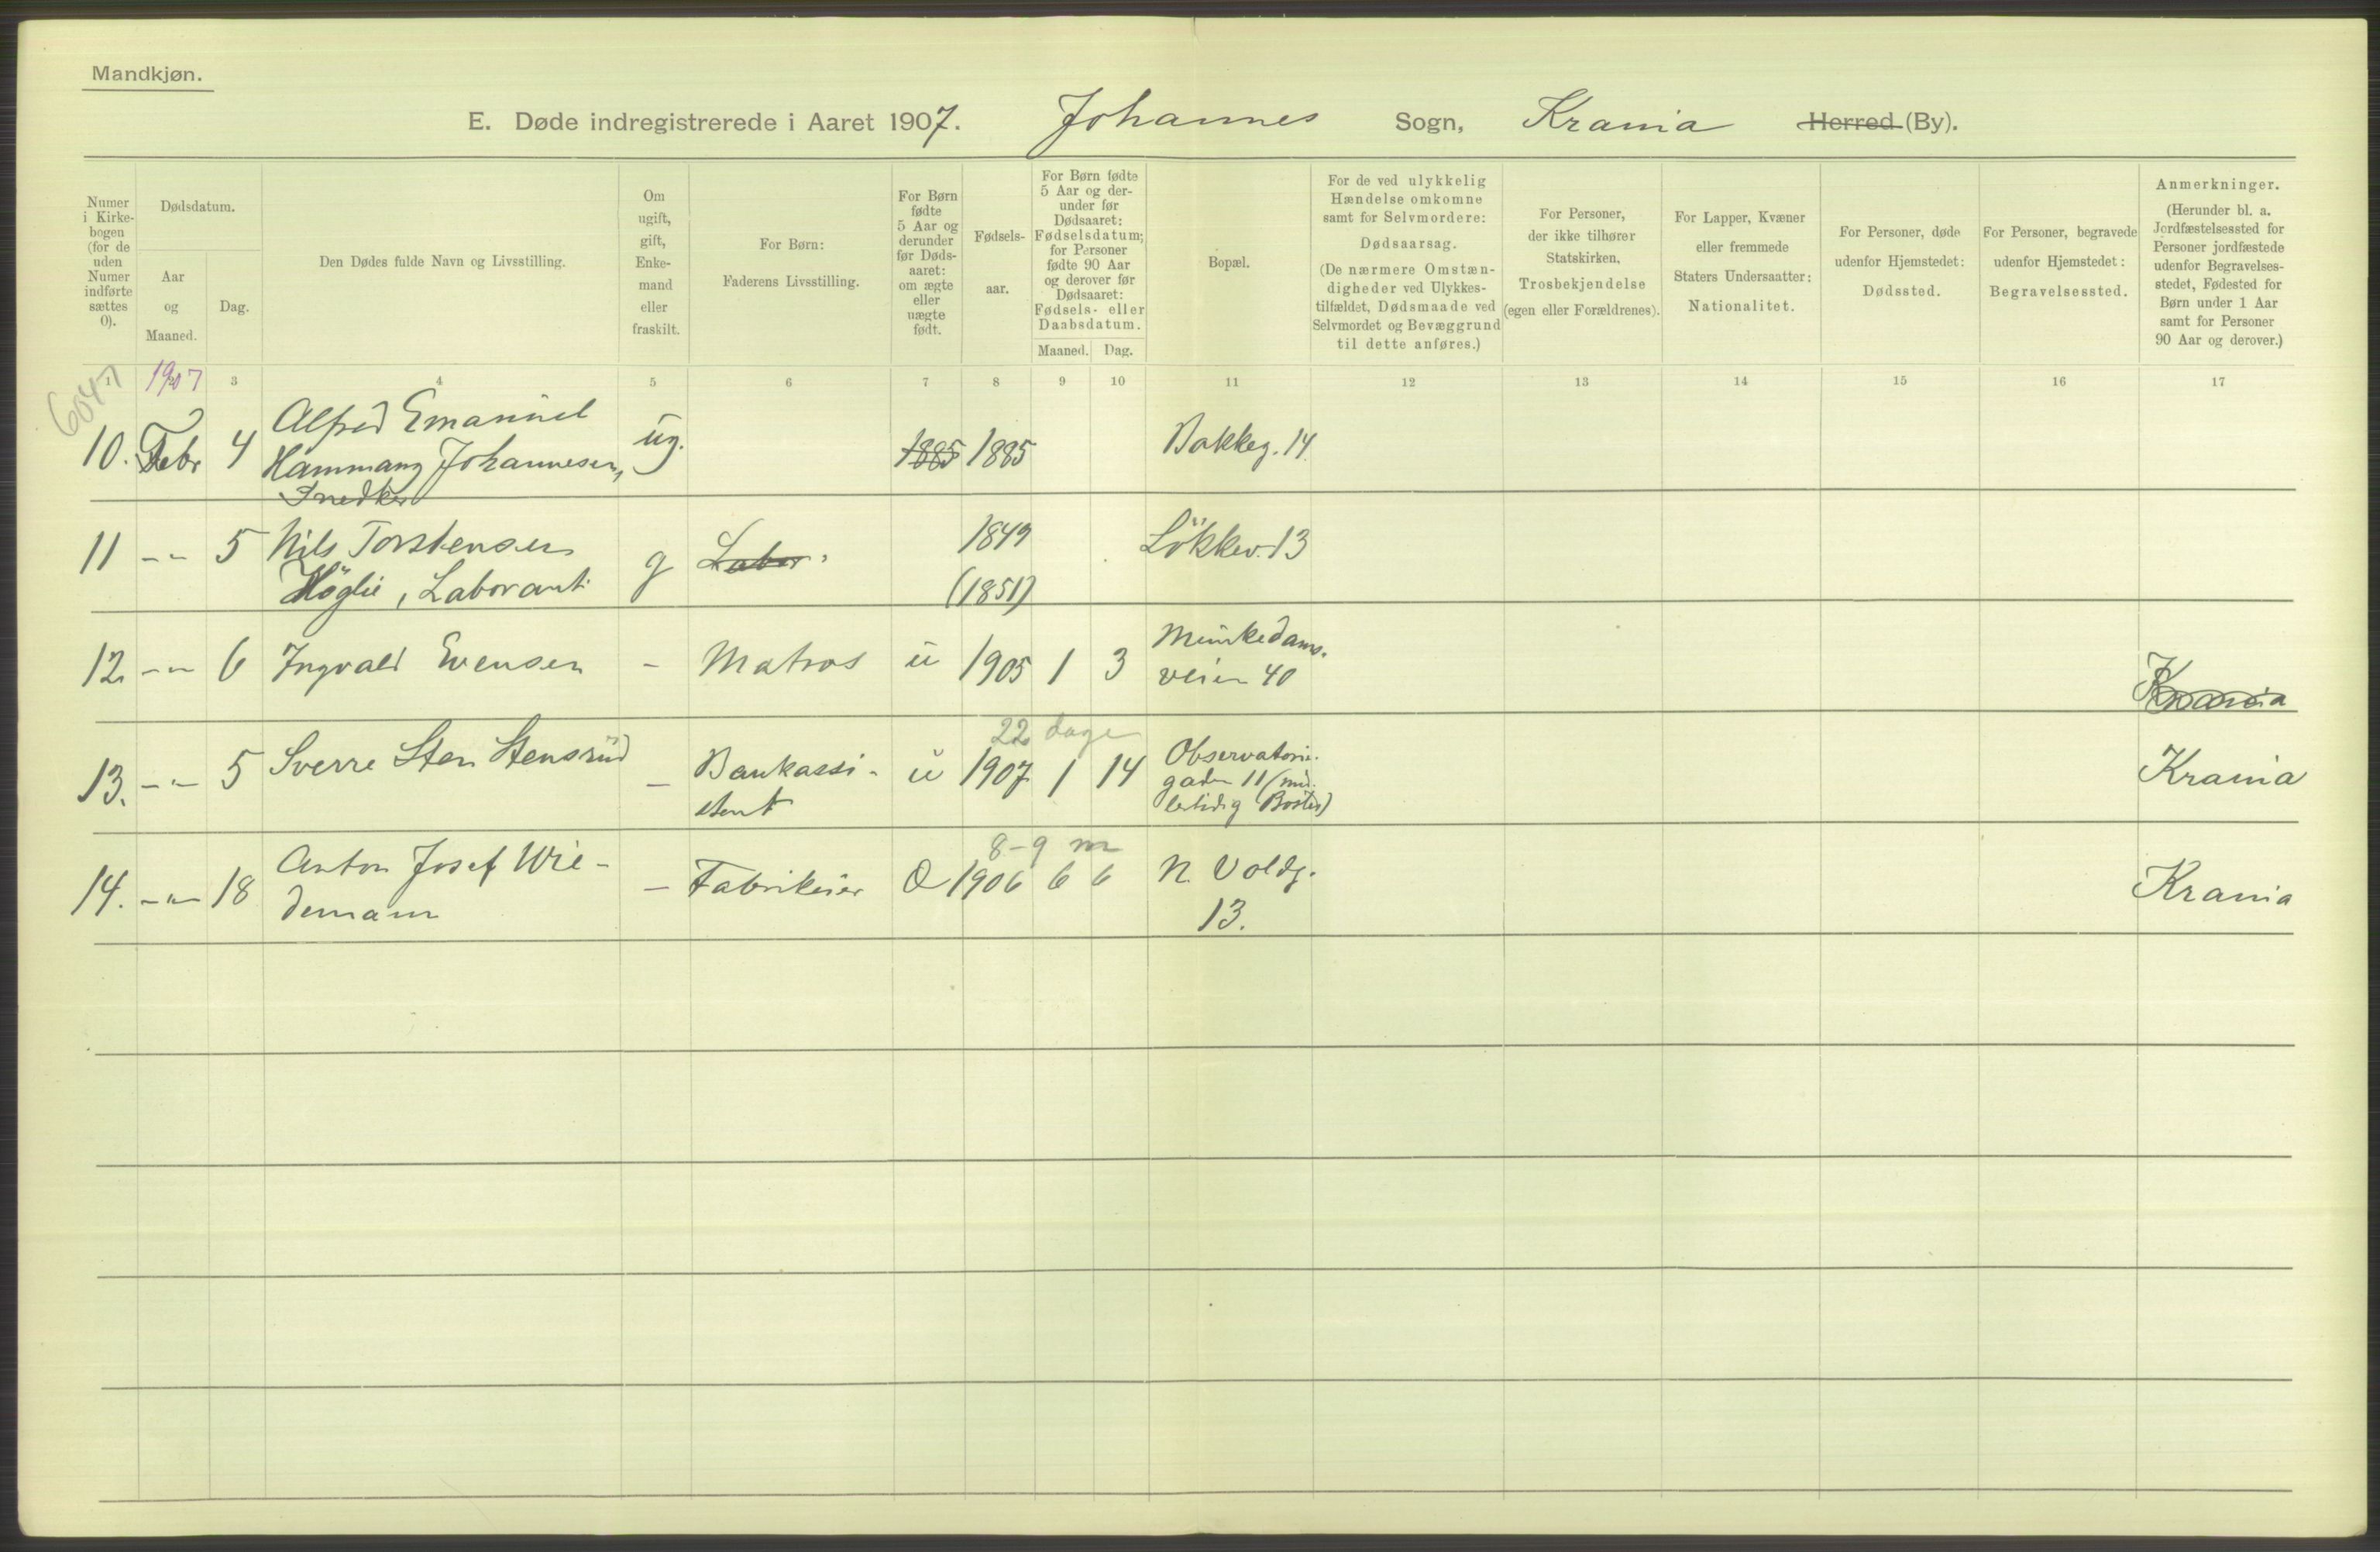 Mandkjøn.
E. Døde indregistrerede i Aaret 1907. Johannes Sogn, Krania Herred (By).
Numer i Kirkebogen (for de uden Numer indførte sættes 0).
Dødsdatum.
Aar og Maaned.
Dag.
Den Dødes fulde Navn og Livsstilling.
Om ugift, gift, Enkemand eller fraskilt.
For Børn: Faderens Livsstilling.
For Børn fødte 5 Aar og derunder før Dødsaaret: om ægte eller uægte født.
Fødselsaar.
For Børn fødte 5 Aar og derunder før Dødsaaret: Fødselsdatum; for Personer fødte 90 Aar og derover før Dødsaaret: Fødsels- eller Daabsdatum.
Maaned. Dag.
Bopæl.
For de ved ulykkelig Hændelse omkomne samt for Selvmordere: Dødsaarsag. (De nærmere Omstændigheder ved Ulykkestilfældet, Dødsmaade ved Selvmordet og Bevæggrund til dette anføres.)
For Personer, der ikke tilhører Statskirken, Trosbekjendelse (egen eller Forældrenes).
For Lapper, Kvæner eller fremmede Staters Undersaatter: Nationalitet.
For Personer, døde udenfor Hjemstedet: Dødssted.
For Personer, begravede udenfor Hjemstedet: Begravelsessted.
Anmerkninger. (Herunder bl. a. Jordfæstelsessted for Personer jordfæstede udenfor Begravelsesstedet, Fødested for Børn under 1 Aar samt for Personer 90 Aar og derover.)
6047
1 1907 3 4 5 6 7 8 9 10 11 12 13 14 15 16 17
10. Febr 4 Alfred Emanuel
Hammang Johannesen, ug. 1885 1885 Bakkeg. 14.
Snedker
11 -"- 5 Nils Torstensen g Labor. 1849 Lökkev. 13
Höglie, Laborant (1851)
12 -"- 6 Ingvald Evensen - Matros u 1905 1 3 Munkedams-
veien 40 Krania
22 dage
13. -"- 5 Sverre Sten Stensrud - Bankassi- u 1907 1 14 Observatorie- Krania
stent gaden 11 (mid-
lertidig Bosted)
8-9 m
14. -"- 18 Anton Josef Wie- - Fabrikeier 1906 6 6 N. Voldg. Krania
demann 13.